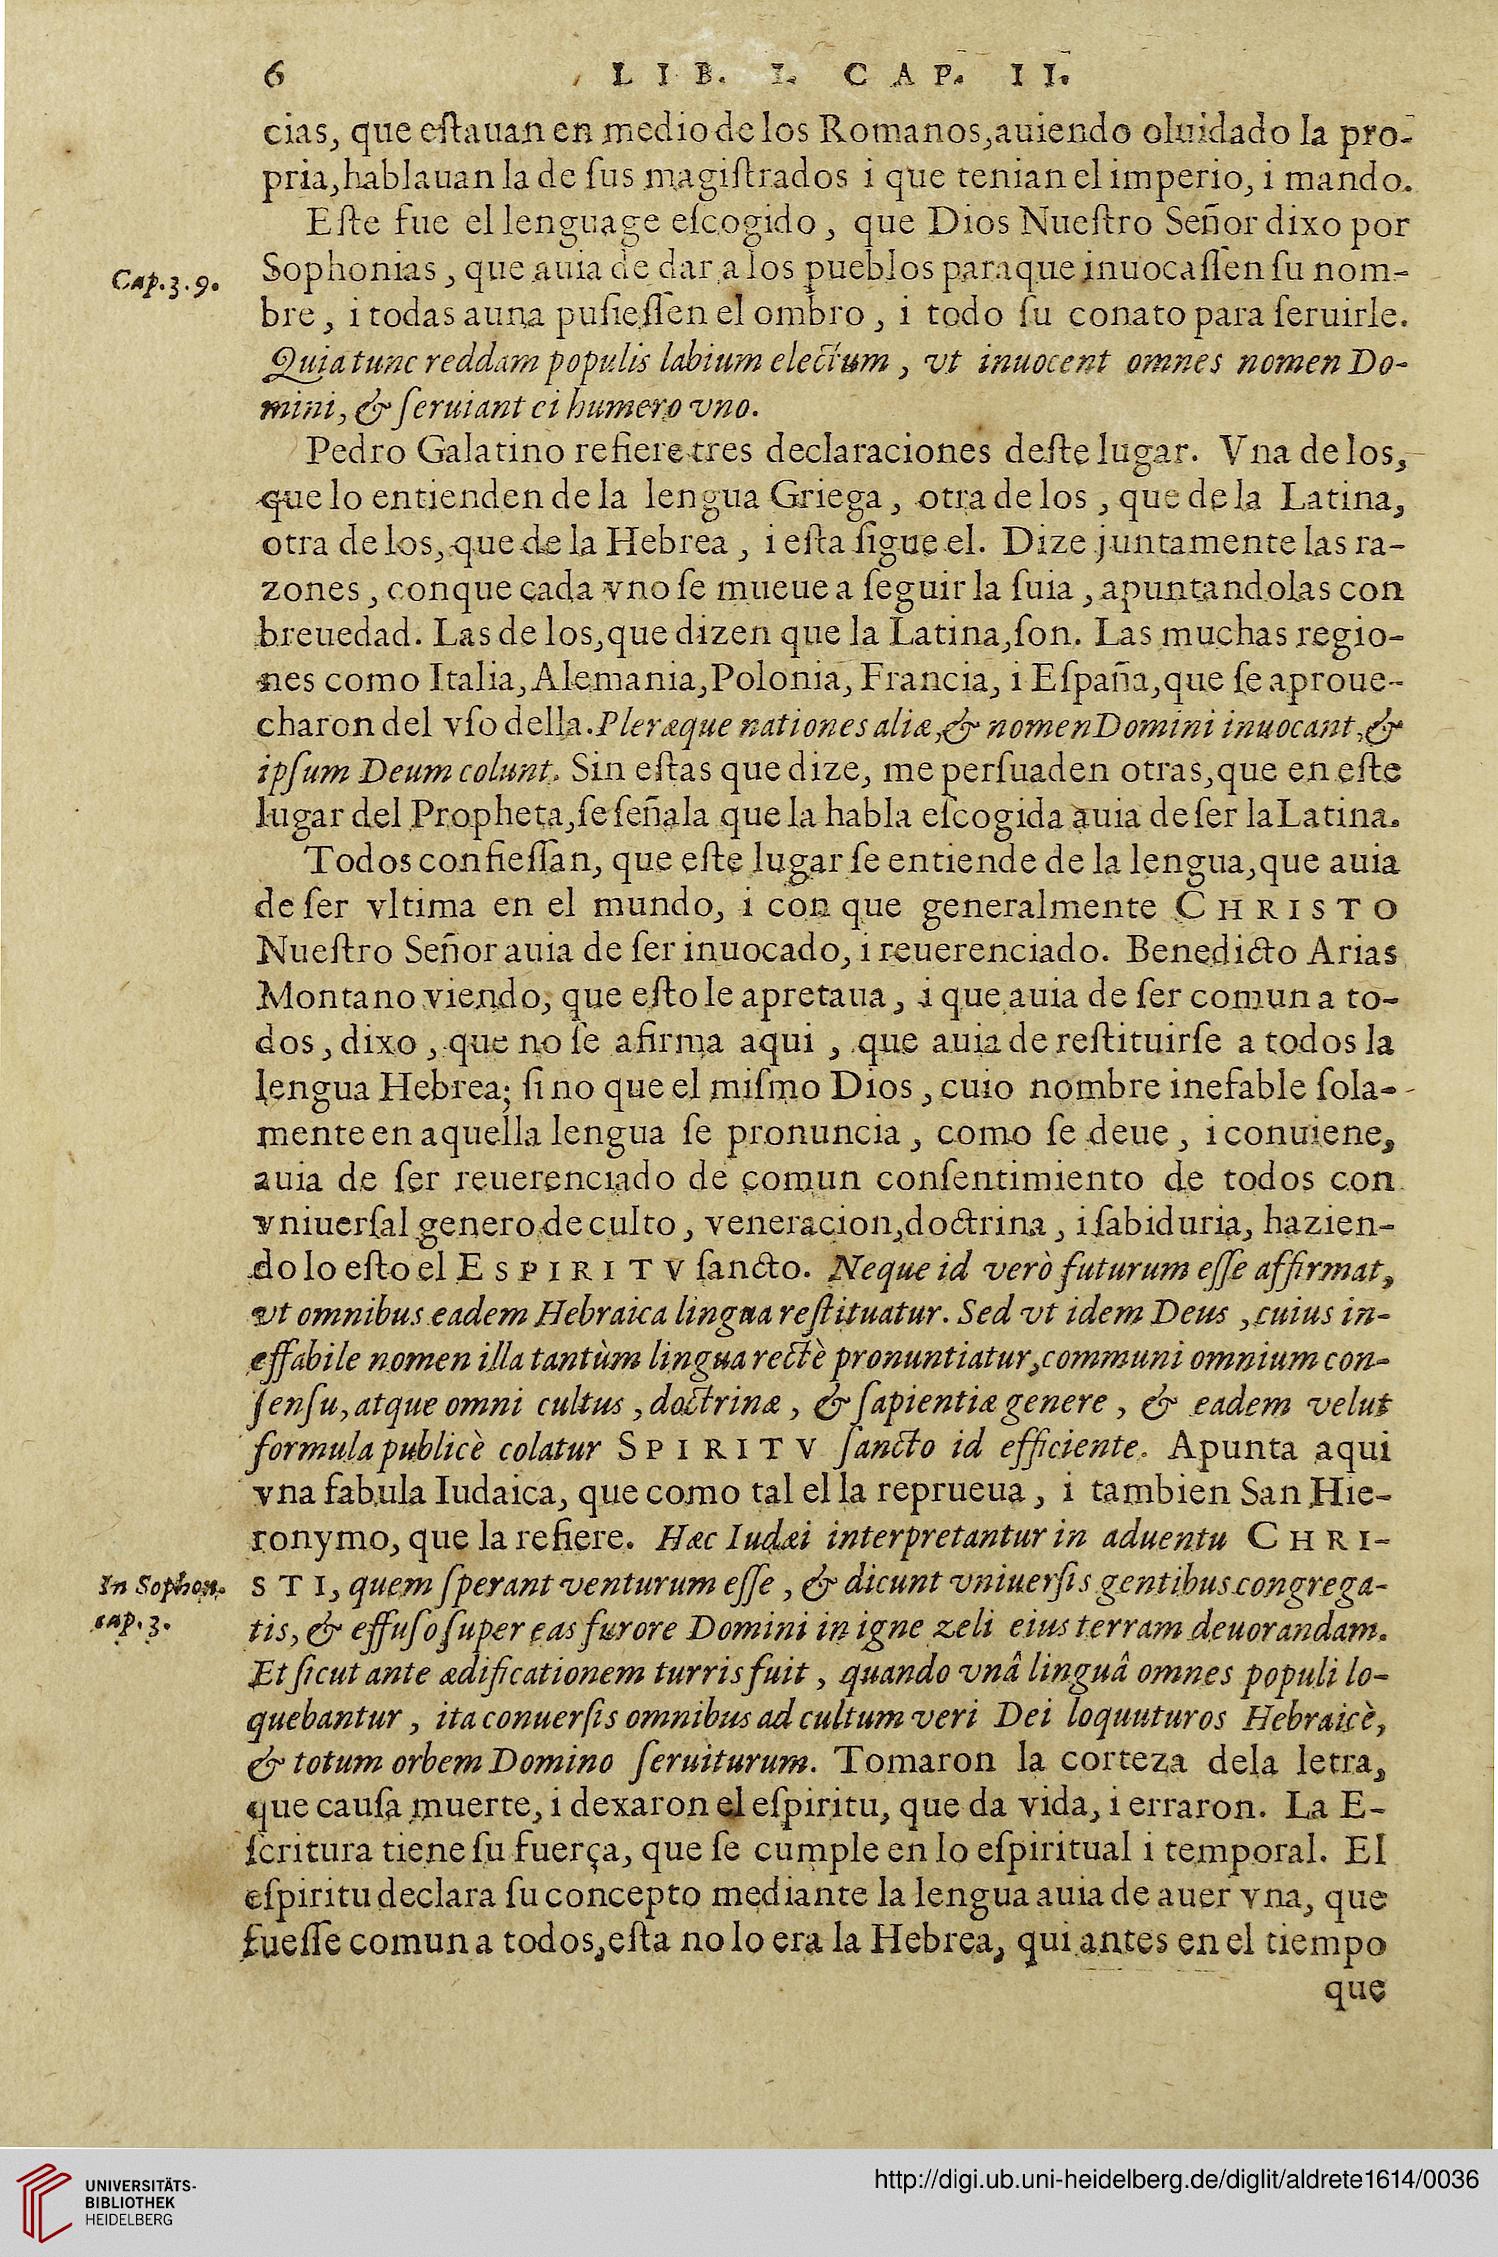 6 LIB. I. CAP. II.
cias, que eſtauan en medio de los Romanos, auiendo oluidado la pro-
pria, hablauan la de ſus magiſtrados i que tenian el imperio, i mando.
Eſte fue el lenguage eſcogido, que Dios Nueſtro Señor dixo por
Cap.3.9.
Sophonias, que auia de dar a los pueblos paraque inuocaſſen ſu nom-
bre, i todas auna puſieſſen el ombro, i todo ſu conato para ſeruirle.
Quia tunc reddam populis labium electum, vt inuocent omnes nomen Do-
mini, & ſeruiant ei humero vno.
Pedro Galatino refiere tres declaraciones deſte lugar. Vna de los,
que lo entienden de la lengua Griega, otra de los, que de la Latina,
otra de los, que de la Hebrea, i eſta ſigue el. Dize juntamente las ra-
zones, conque cada vno ſe mueue a ſeguir la ſuia, apuntandolas con
breuedad. Las de los, que dizen que la Latina, ſon. Las muchas regio-
nes como Italia, Alemania, Polonia, Francia, i Eſpaña, que ſe aproue-
charon del vſo della. Pleræque nationes aliæ, & nomen Domini inuocant, &
ipſum Deum colunt. Sin eſtas que dize, me perſuaden otras, que en eſte
lugar del Propheta, ſe ſeñala que la habla eſcogida auia de ſer la Latina.
Todos confieſſan, que eſte lugar ſe entiende de la lengua, que auia
de ſer vltima en el mundo, i con que generalmente CHRISTO
Nueſtro Señor auia de ſer inuocado, i reuerenciado. Benedicto Arias
Montano viendo, que eſto le apretaua, i que auia de ſer comun a to-
dos, dixo, que no ſe afirma aqui, que auia de reſtituirſe a todos la
lengua Hebrea; ſi no que el miſmo Dios, cuio nombre inefable ſola-
mente en aquella lengua ſe pronuncia, como ſe deue, i conuiene,
auia de ſer reuerenciado de comun conſentimiento de todos con
vniuerſal genero de culto, veneracion, doctrina, i ſabiduria, hazien-
do lo eſto el ESPIRITV ſancto. Neque id verò futurum eſſe affirmat,
vt omnibus eadem Hebraica lingua reſtituatur. Sed vt idem Deus, cuius in-
effabile nomen illa tantùm lingua rectè pronuntiatur, communi omnium con-
ſenſu, atque omni cultus, doctrinæ, & ſapientiæ genere, & eadem velut
formula publicè colatur SPIRITV ſancto id efficiente. Apunta aqui
vna fabula Iudaica, que como tal el la reprueua, i tambien San Hie-
ronymo, que la refiere. Hæc Iudæi interpretantur in aduentu CHRI-
In Sophon.
cap.3.
STI, quem ſperant venturum eſſe, & dicunt vniuerſis gentibus congrega-
tis, & effuſo ſuper eas furore Domini in igne zeli eius terram deuorandam.
Et ſicut ante ædificationem turris fuit, quando vnâ linguâ omnes populi lo-
quebantur, ita conuerſis omnibus ad cultum veri Dei loquuturos Hebraicè,
& totum orbem Domino ſeruiturum. Tomaron la corteza dela letra,
que cauſa muerte, i dexaron el eſpiritu, que da vida, i erraron. La E-
ſcritura tiene ſu fuerça, que ſe cumple en lo eſpiritual i temporal. El
eſpiritu declara ſu concepto mediante la lengua auia de auer vna, que
fueſſe comun a todos, eſta no lo era la Hebrea, qui antes en el tiempo
que
UNIVERSITÄTS-
BIBLIOTHEK
HEIDELBERG
http://digi.ub.uni-heidelberg.de/diglit/aldrete1614/0036